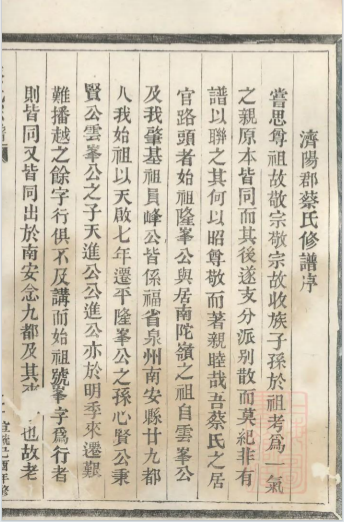 濟陽郡蔡氏修譜序
嘗思尊祖故敬宗敬宗故收族子孫於祖考為一氣
之親原本皆同而其後遂支分派別散而莫紀非有
譜以聯之其何以昭尊敬而著親睦哉吾蔡氏之居
官路頭者始祖隆峯公與居南陀嶺之祖自雲峯公
及我肇基祖員峰公皆係福省泉州南安縣廿九都
人我始祖以天啟七年遷平隆峯公之孫心賢公秉
賢公雲峯公之子天進公公進公亦於明季來遷艱
難播越之餘字行俱不及講而始祖號峯字為行者
則皆同又皆同出於南安念九都及其 也故老
宣統己酉年修